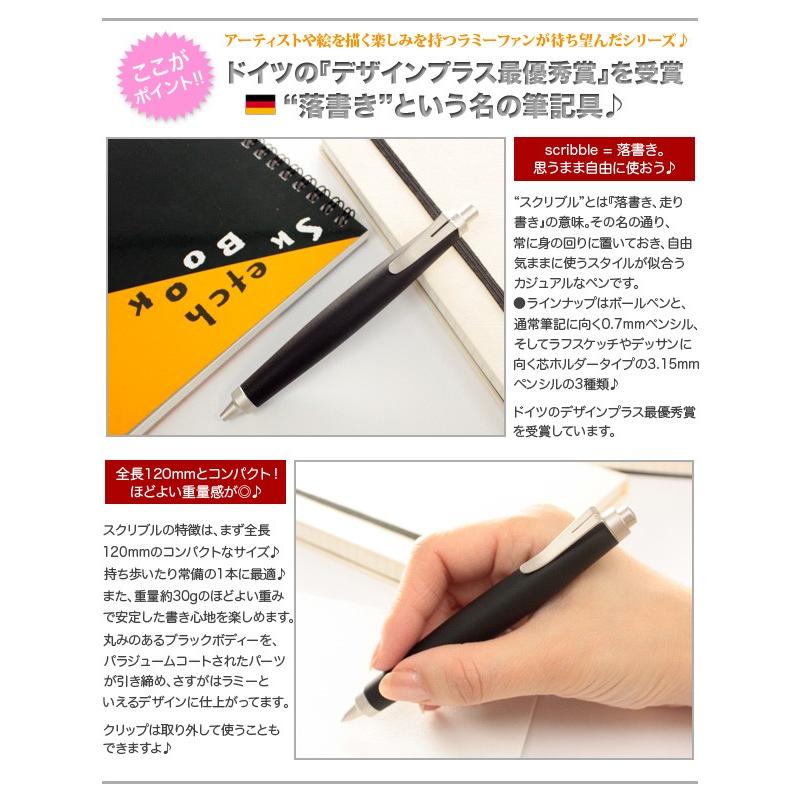 アーティストや絵を描く楽しみを持つラミーファンが待ち望んだシリーズ♪
ここが
ポイント!!
ドイツの『デザインプラス最優秀賞』を受賞
“落書き”という名の筆記具♪
Sketch
Book
scribble = 落書き。
思うまま自由に使おう♪
“スクリブル”とは『落書き、走り
書き』の意味。その名の通り、
常に身の回りに置いておき、自由
気ままに使うスタイルが似合う
カジュアルなペンです。
●ラインナップはボールペンと、
通常筆記に向く0.7mmペンシル、
そしてラフスケッチやデッサンに
向く芯ホルダータイプの3.15mm
ペンシルの3種類♪
ドイツのデザインプラス最優秀賞
を受賞しています。
全長120mmとコンパクト!
ほどよい重量感が◎♪
スクリブルの特徴は、まず全長
120mmのコンパクトなサイズ♪
持ち歩いたり常備の1本に最適♪
また、重量約30gのほどよい重み
で安定した書き心地を楽しめます。
丸みのあるブラックボディーを、
パラジュームコートされたパーツ
が引き締め、さすがはラミーと
いえるデザインに仕上がってます。
クリップは取り外して使うことも
できますよ♪